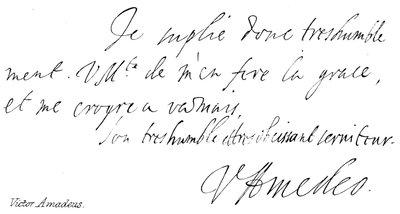 Je suplie donc treshumble
ment. V Mte de m'en fere la grace,
et me croyre a vamais,
Son treshumble et tresobeissant serviteur.
V Amedeo.
Victor Amadeus.